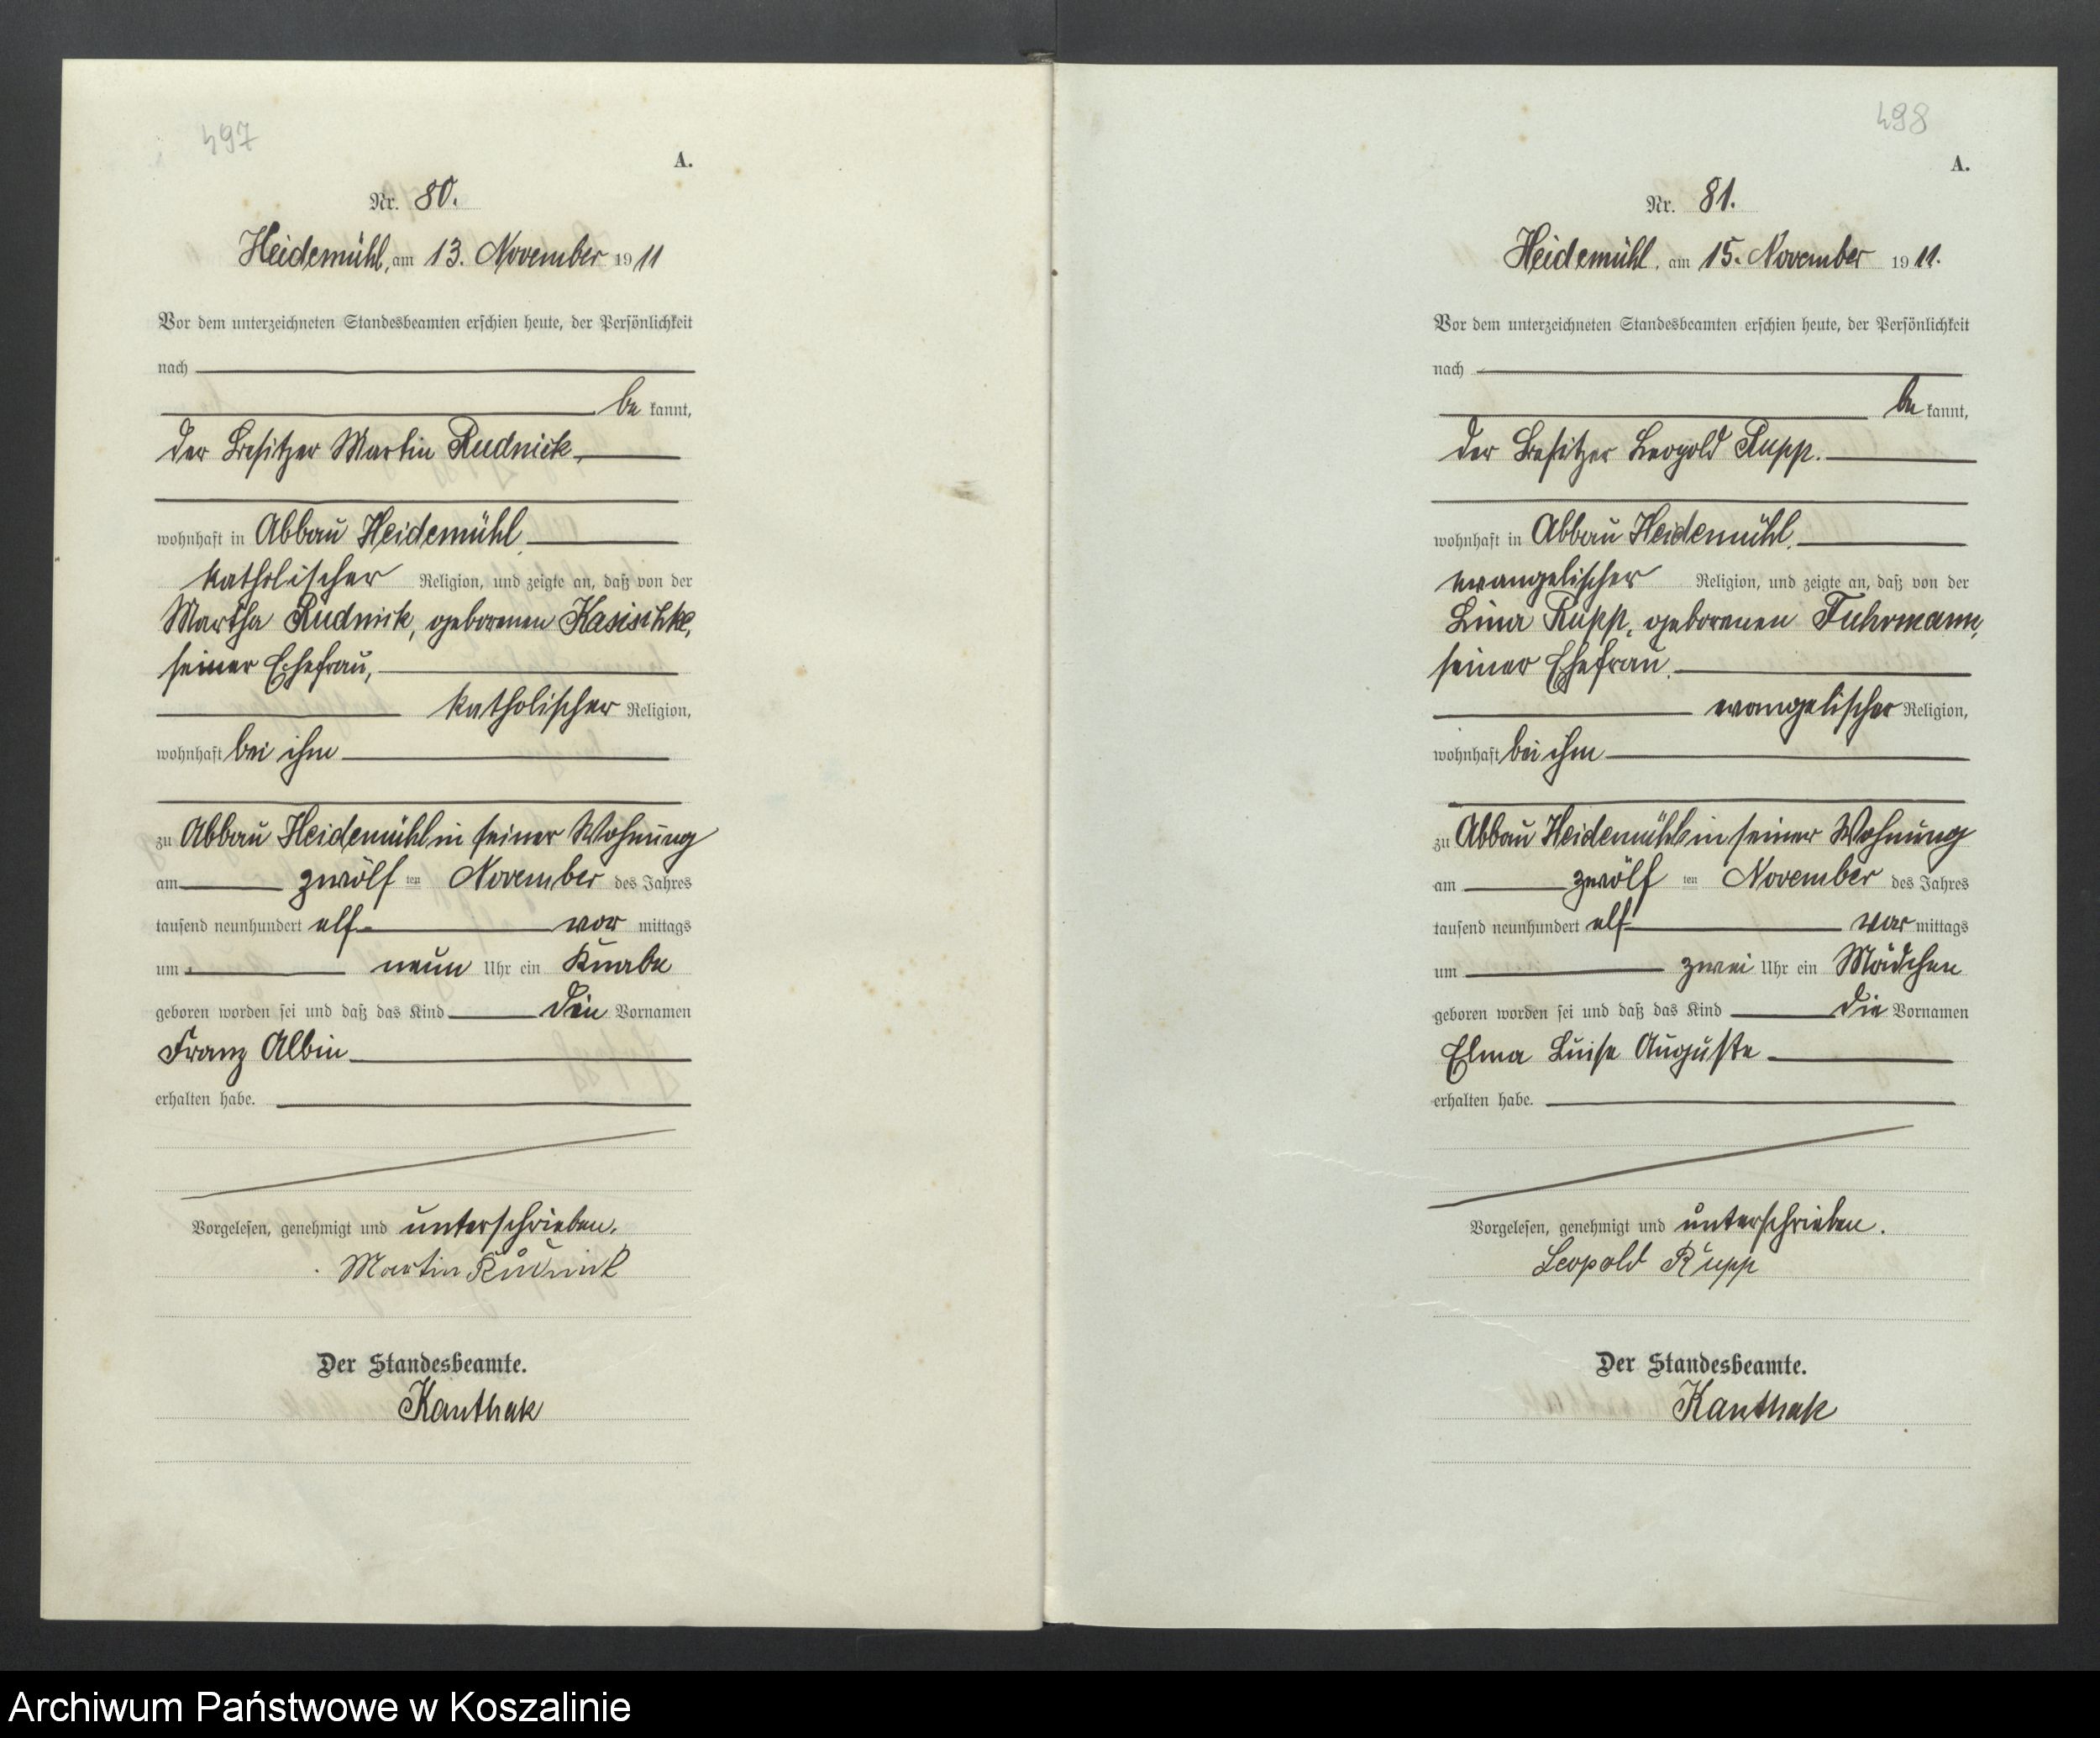 497
A.
Nr. 80.
Heidemühl, am 13. November 1911
Vor dem unterzeichneten Standesbeamten erschien heute, der Persönlichkeit
nach
be kannt,
der Besitzer Martin Rudnick,
wohnhaft in Abbau Heidemühl,
katholischer Religion, und zeigte an, daß von der
Martha Rudnick, geborenen Kasischke,
seiner Ehefrau,
katholischer Religion,
wohnhaft bei ihm
zu Abbau Heidemühl in seiner Wohnung
am zwölf ten November des Jahres
tausend neunhundert elf vor mittags
um neun Uhr ein Knabe
geboren worden sei und daß das Kind die Vornamen
Franz Albin
erhalten habe.
Vorgelesen, genehmigt und unterschrieben.
Martin Rudnick
Der Standesbeamte.
Kanthak
498
A.
Nr. 81.
Heidemühl, am 15. November 1911.
Vor dem unterzeichneten Standesbeamten erschien heute, der Persönlichkeit
nach
be kannt,
der Besitzer Leopold Rupp.
wohnhaft in Abbau Heidemühl,
evangelischer Religion, und zeigte an, daß von der
Lina Rupp, geborenen Fuhrmann,
seiner Ehefrau,
evangelischer Religion,
wohnhaft bei ihm
zu Abbau Heidemühl in seiner Wohnung
am zwölf ten November des Jahres
tausend neunhundert elf vor mittags
um zwei Uhr ein Mädchen
geboren worden sei und daß das Kind die Vornamen
Elma Luise Auguste
erhalten habe.
Vorgelesen, genehmigt und unterschrieben.
Leopold Rupp
Der Standesbeamte.
Kanthak
Archiwum Państwowe w Koszalinie